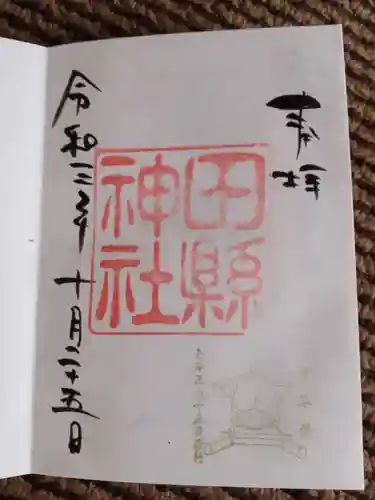 奉拝
田縣
神社
令和三年十月二十五日